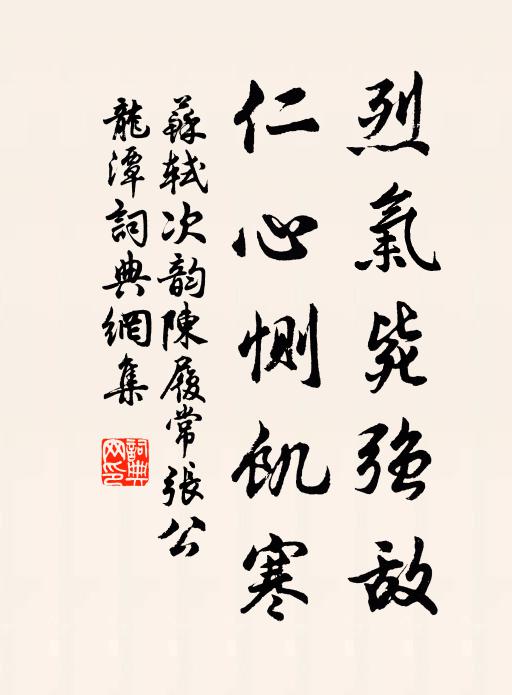 烈氣毙強敌
仁心惻飢寒
蘇軾次韻陳履常張公
龍潭詞典網集
詞典
网印